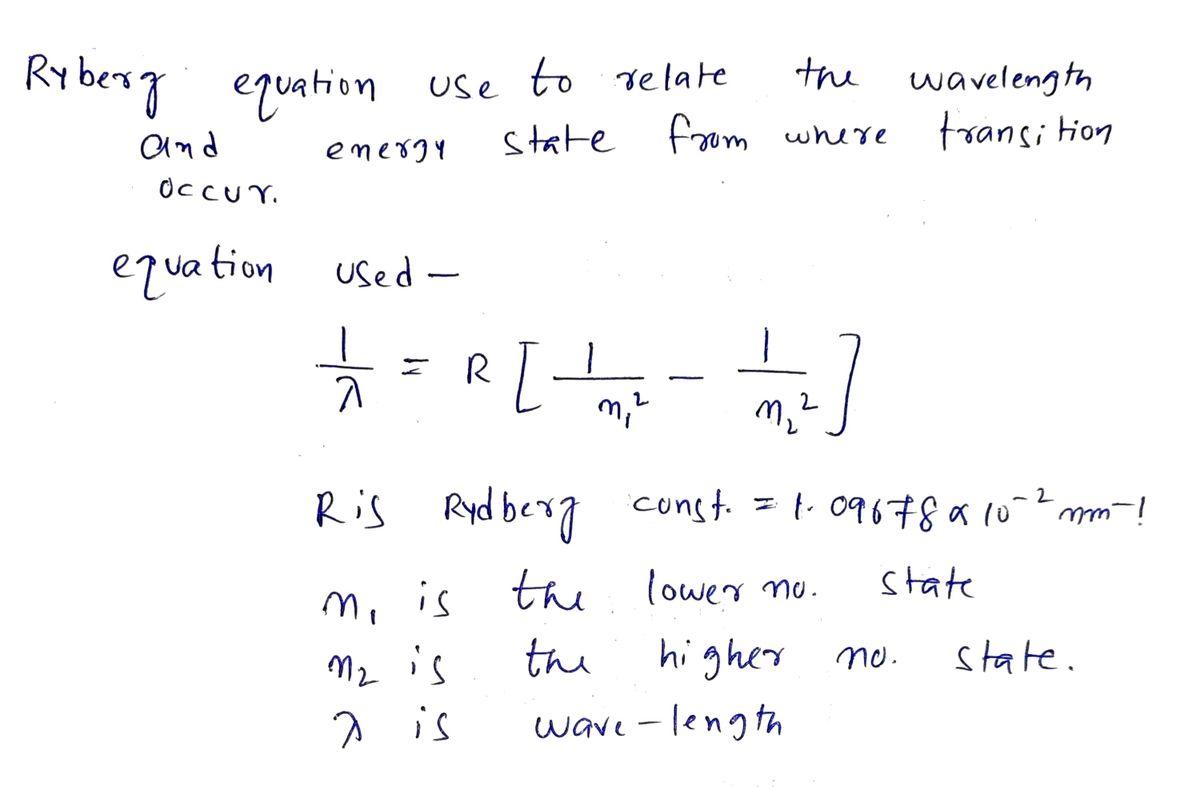 Ryberg equation use to relate the wavelength
and energy state from where transition
occur.
equation used -
1/λ = R [ 1/n₁² - 1/n₂² ]
R is Rydberg const. = 1.09678 x 10⁻² nm⁻¹
n₁ is the lower no. state
n₂ is the higher no. state.
λ is wave-length